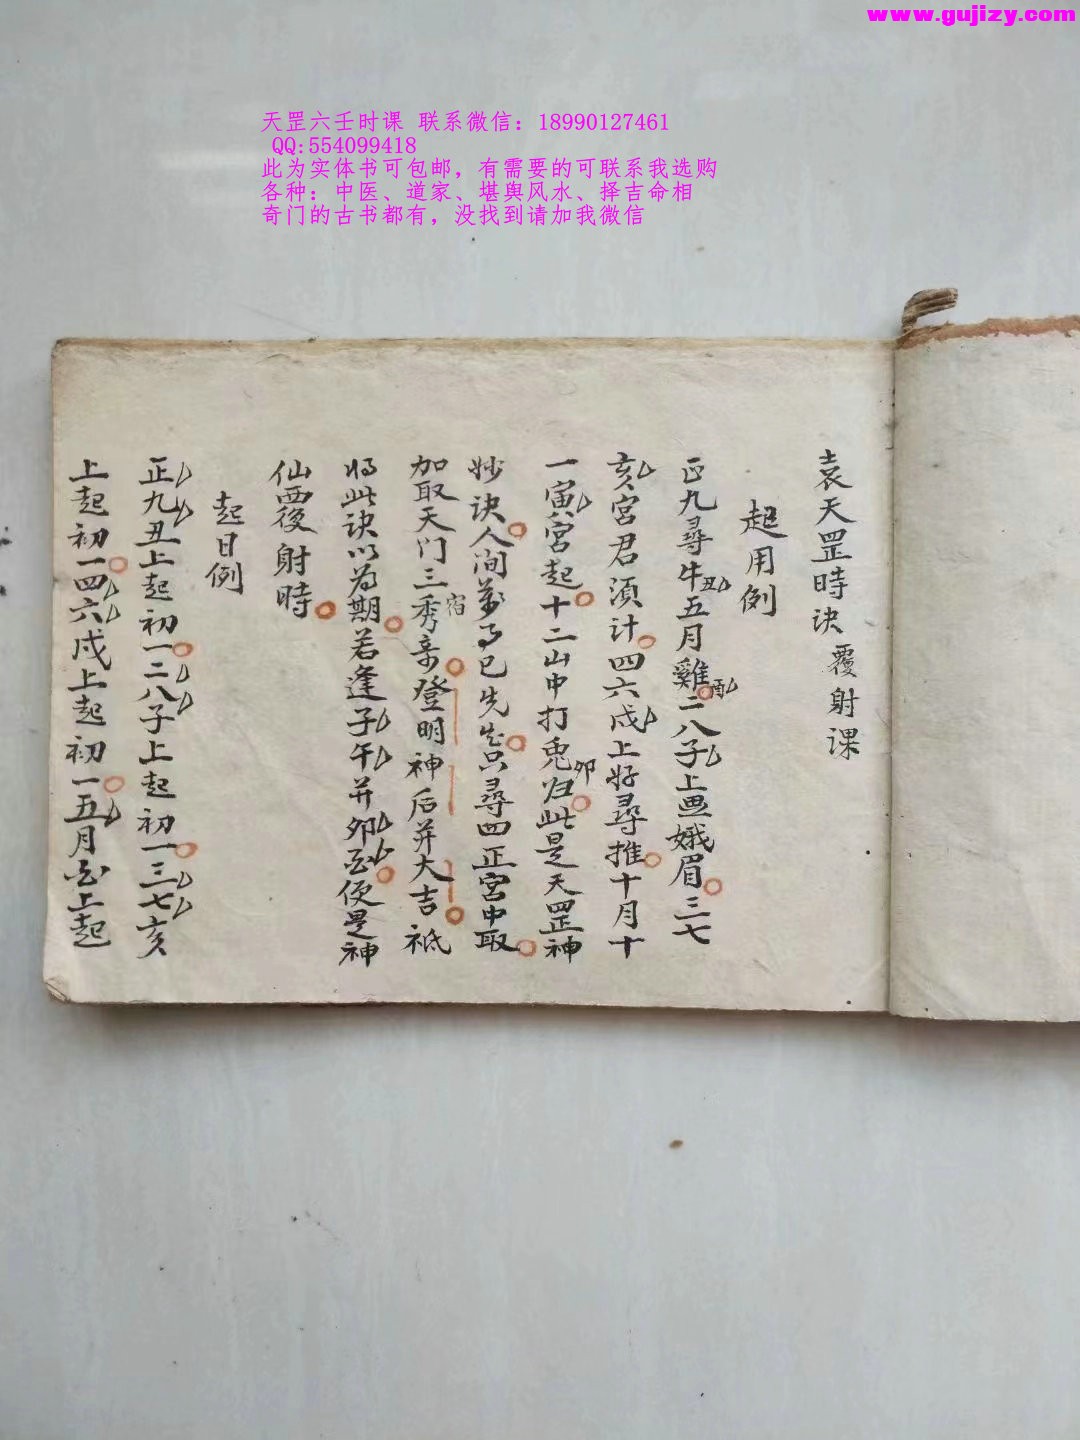 www.gujizy.com
天罡六壬时课 联系微信：18990127461
QQ:554099418
此为实体书可包邮，有需要的可联系我选购
各种：中医、道家、堪舆风水、择吉命相
奇门的古书都有，没找到请加我微信
袁天罡時诀 覆射课
起用例
正九尋牛丑五月雞酉二八子上畫娥眉三七
亥宮君須计四六戍上好尋推十月十
一寅宮起十二山中打兎卯归此是天罡神
妙诀人间萬事已先告只尋四正宮中取
加取天门三秀宿登明神后并大吉祇
将此诀以為期若逢子午并卯酉便是神
仙覆射時
起日例
正九丑上起初一二八子上起初一三七亥
上起初一四六戍上起初一五月酉上起